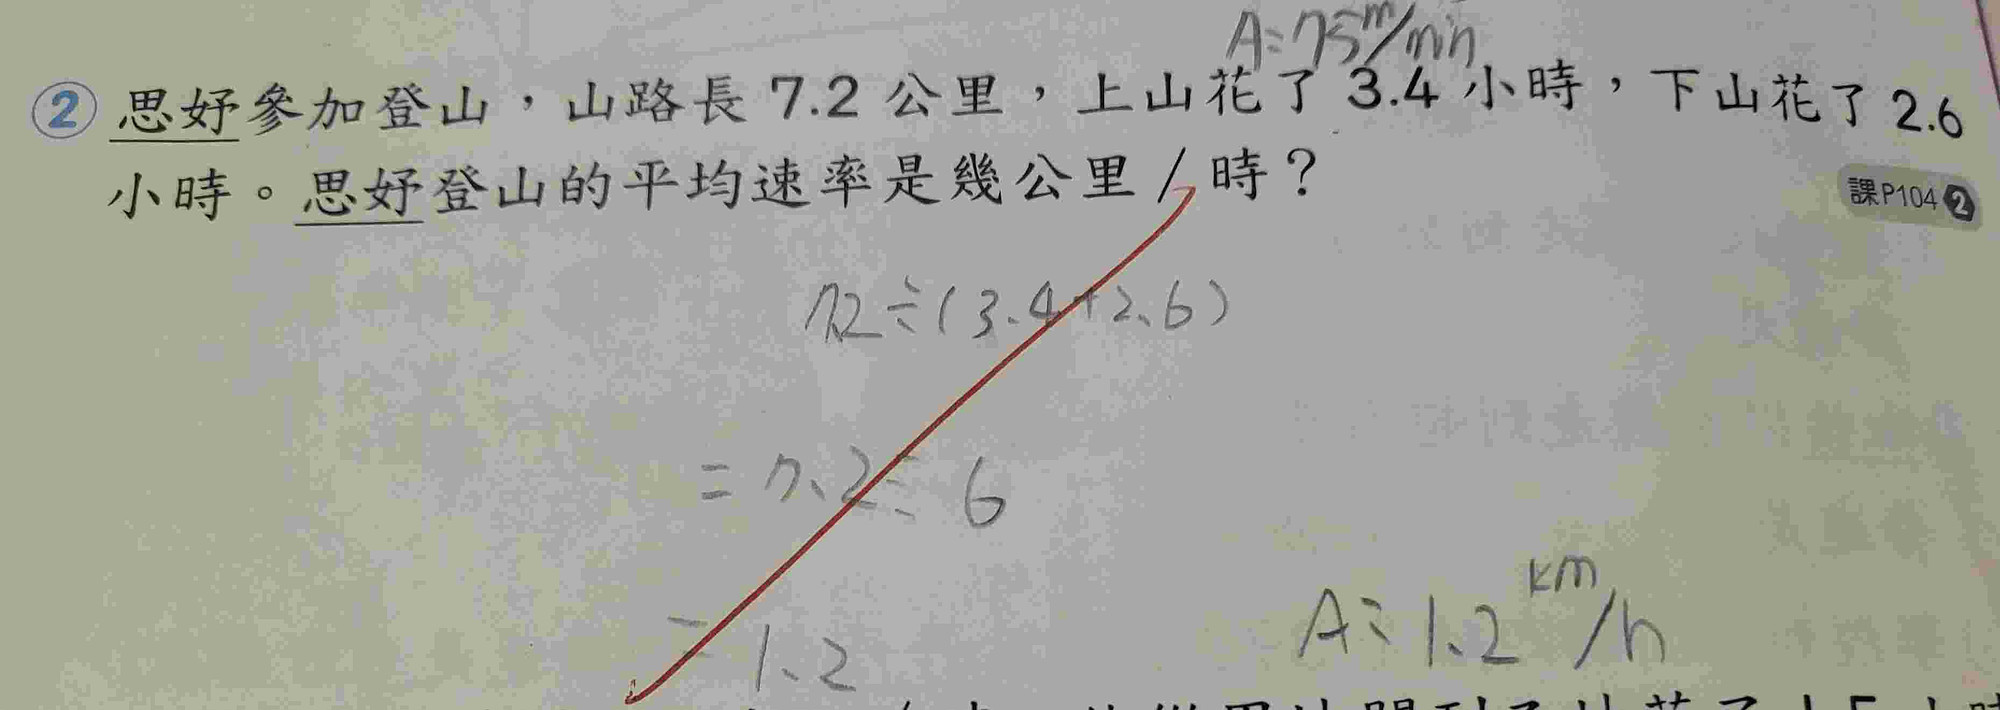 A:75m/min
② 思妤參加登山，山路長 7.2 公里，上山花了 3.4 小時，下山花了 2.6
小時。思妤登山的平均速率是幾公里／時？
課P104 2
7.2÷(3.4+2.6)
=7.2÷6
=1.2
A:1.2 km/h